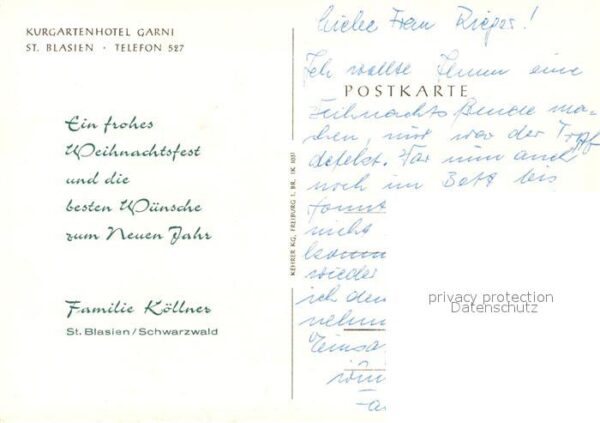 KURGARTENHOTEL GARNI
ST. BLASIEN · TELEFON 527
Ein frohes
Weihnachtsfest
und die
besten Wünsche
zum Neuen Jahr
Familie Köllner
St. Blasien/Schwarzwald
KEHRER KG, FREIBURG I. BR.
POSTKARTE
Liebe Frau Rieger!
Ich wollte Ihnen eine
Weihnachts Freude ma-
chen, nur war der Topf
defekt. War nun auch
noch im Bett bis
nicht
wieder
ich den
nehm
Einsa
privacy protection
Datenschutz